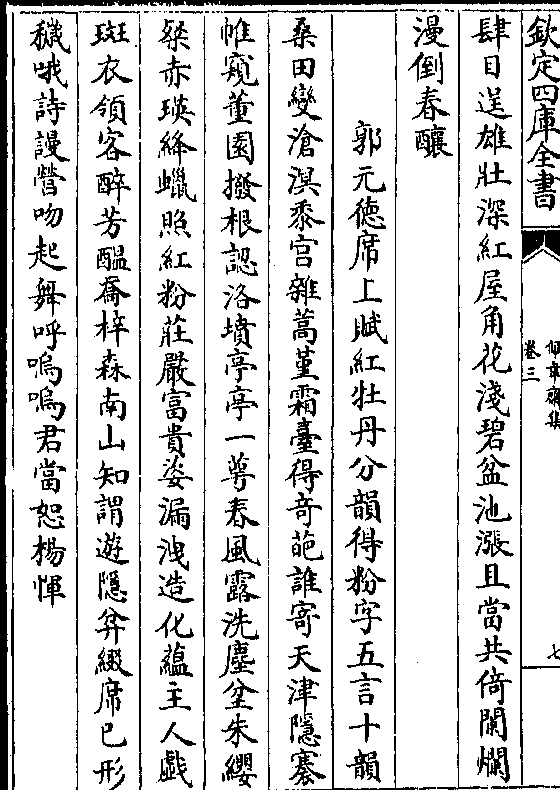 欽定四庫全書
卷三
七
肆目逞雄壯深紅屋角花淺碧盆池漲且當共倚闌爛
漫倒春釀
郭元德席上賦紅牡丹分韻得粉字五言十韻
桑田變滄溟黍宫雜蒿堇霜臺得奇葩誰寄天津隱褰
帷窺董園撥根認洛墳亭亭一尊春風露洗塵坌朱纓
粲赤瑛絳蠟照紅粉莊嚴富貴姿漏洩造化藴主人戯
斑衣領客醉芳醖喬梓森南山知謂遊隠弅綴席已形
穢哦詩謾謍吻起舞呼嗚嗚君當恕楊惲